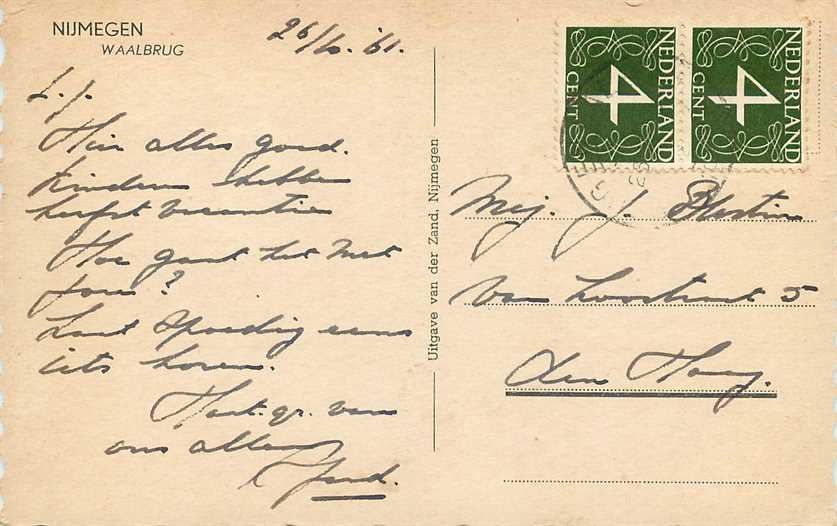 NIJMEGEN
WAALBRUG
26/10 '61.
L. J.
Hier alles goed.
Kinderen hebben
herfst vacantie
Hoe gaat het met
jou?
Laat spoedig eens
iets horen.
Hart. gr. van
ons allen
Uitgave van der Zand, Nijmegen
NEDERLAND
4
CENT
NEDERLAND
4
CENT
Mej. J.
Van Loostraat 5
den Haag.